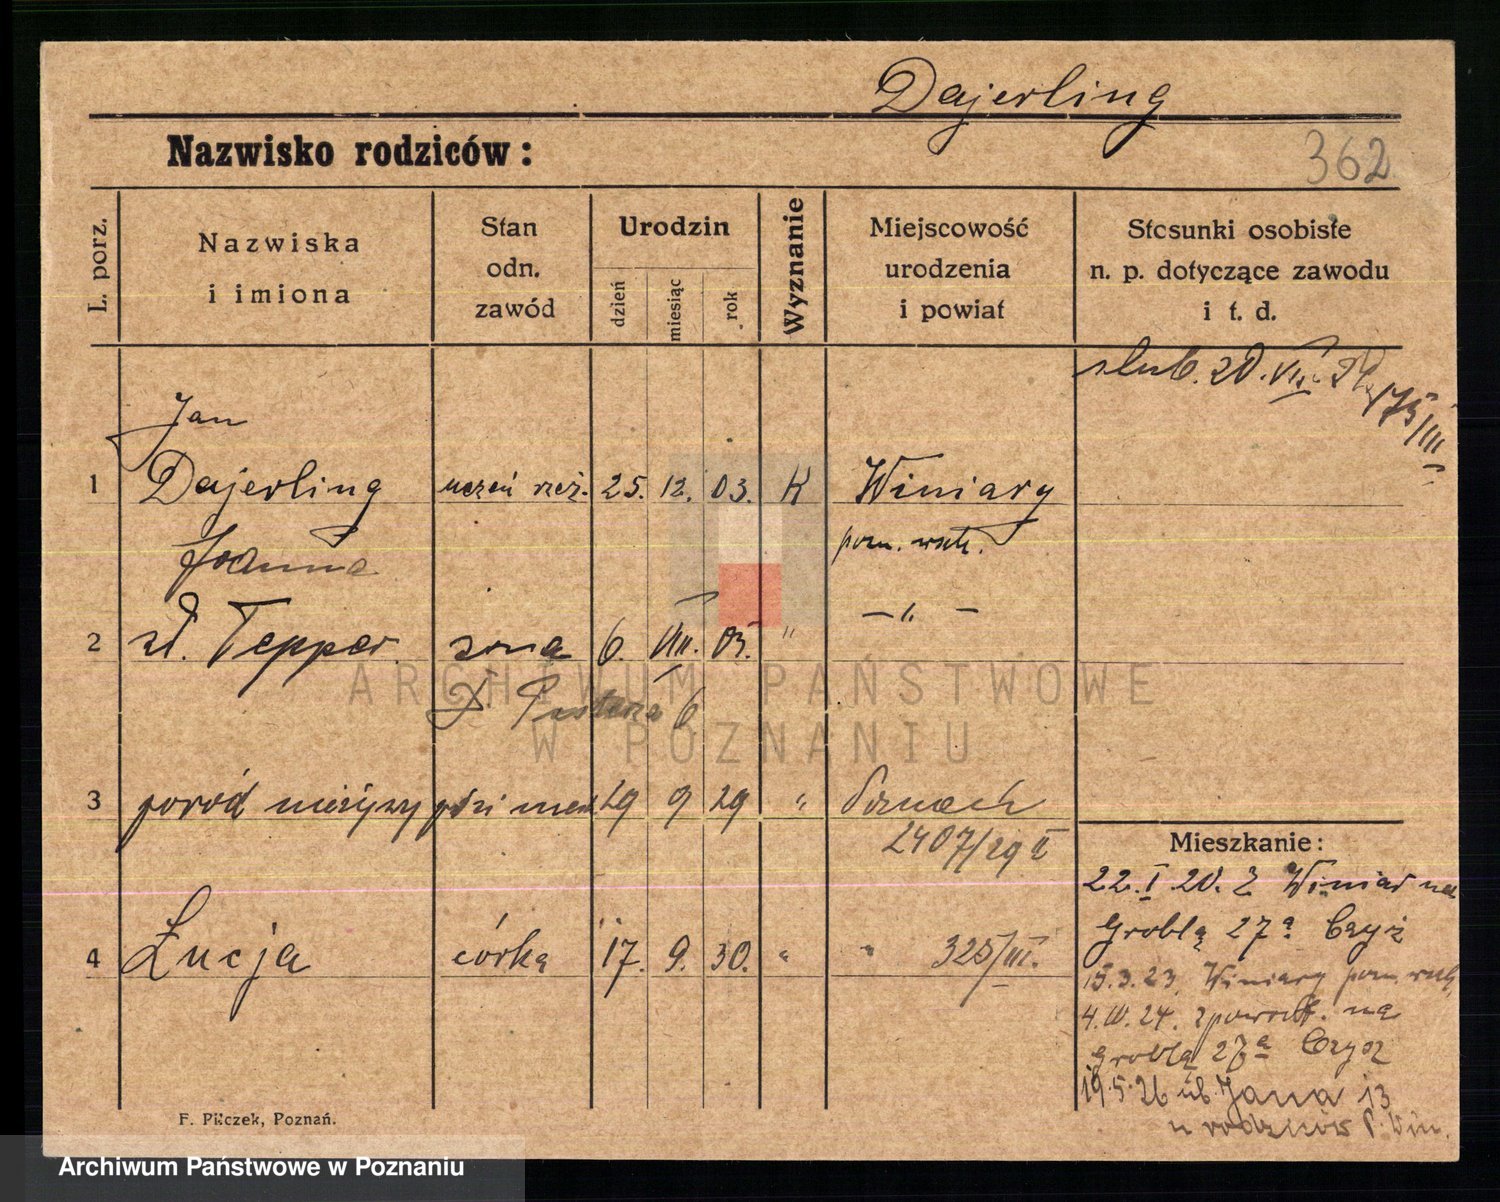 Dajerling
Nazwisko rodziców:
362
L. porz.
Nazwiska
i imiona
Stan
odn.
zawód
Urodzin
dzień
miesiąc
rok
Wyznanie
Miejscowość
urodzenia
i powiat
Stosunki osobiste
n. p. dotyczące zawodu
i t. d.
ślub. 20. VII.
175/III
Jan
1 Dajerling uczeń rzeź. 25. 12. 03. K Winiary
pozn. wsch.
Joanna
2 zd. Tepper. żona 6. VIII. 05. " — " —
6
3 poród nieżywy płci męsk 29 9 29 " Poznań
2407/29 II
4 Łucja córka 17. 9. 30. " " 325/III.
Mieszkanie:
22. I 20. Z Winiar na
Groblą 27a Czyż
15.3.23. Winiary pozn. wsch.
4. IV. 24. spowrot. na
Groblą 27a Czysz
19.5.26 ul. Jana 13
u rodziców
F. Pilczek, Poznań.
ARCHIWUM PAŃSTWOWE
W POZNANIU
Archiwum Państwowe w Poznaniu